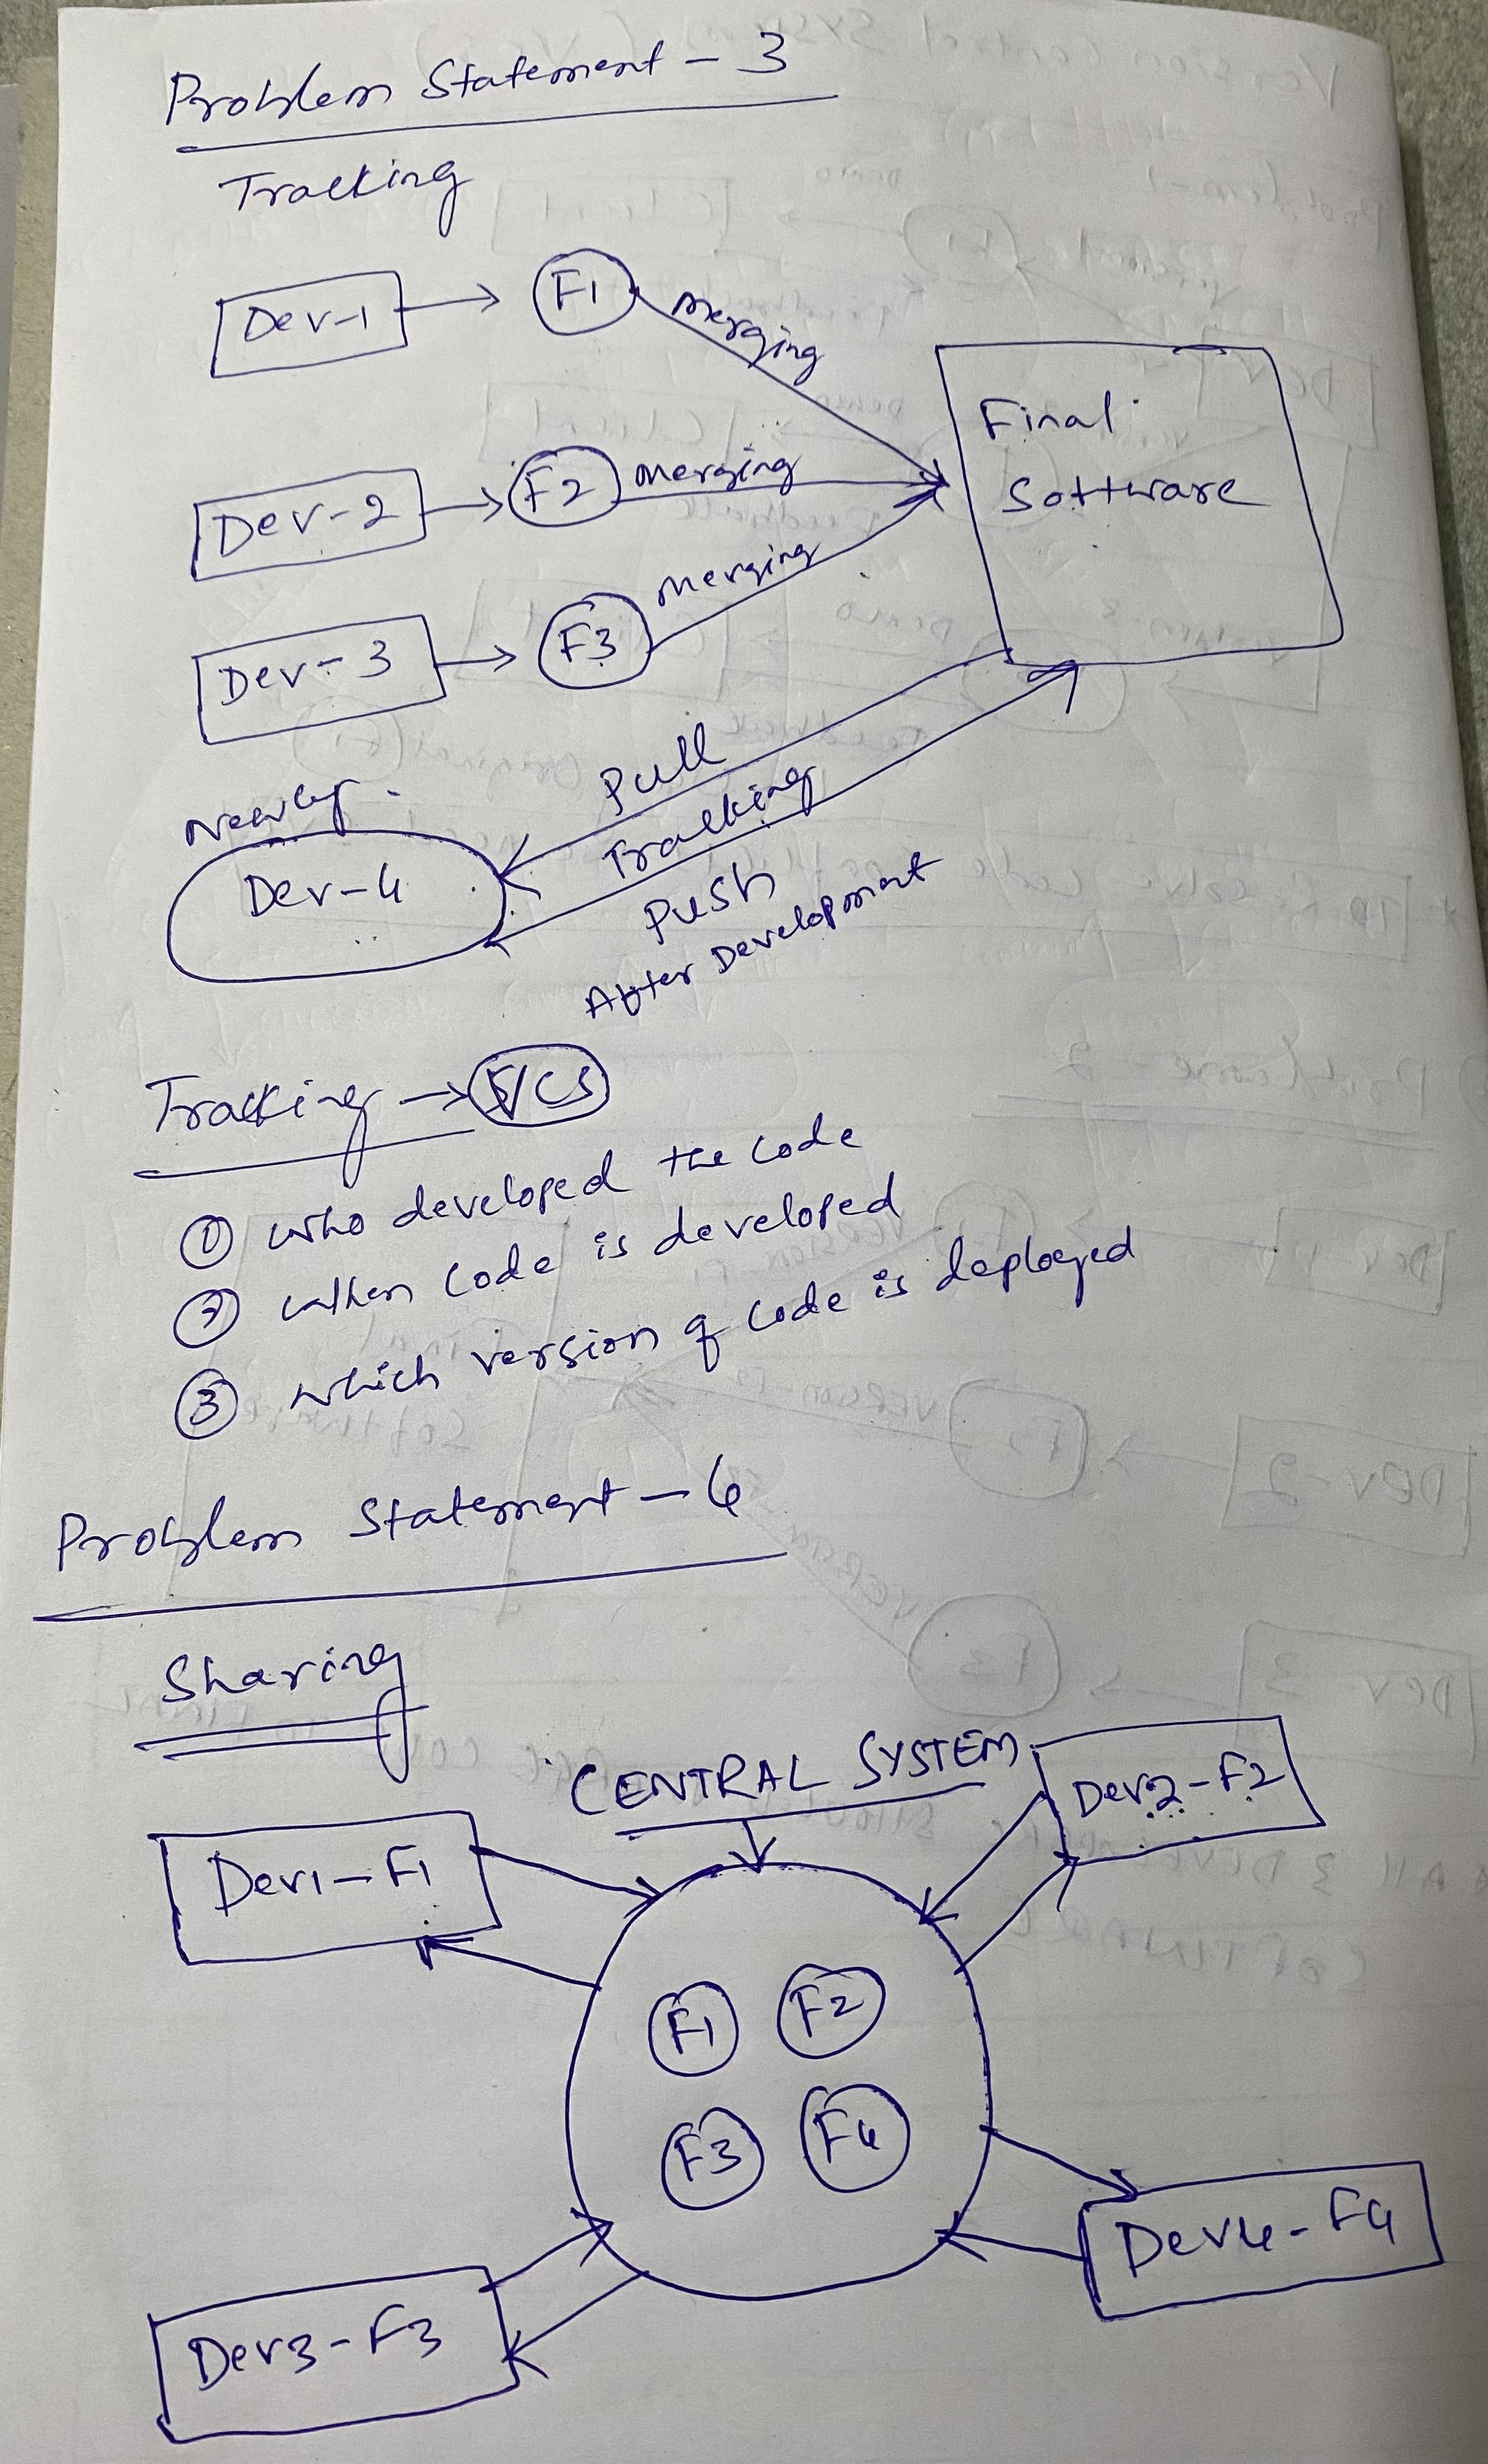 Problem Statement - 3
Tracking
Dev-1
F1
merging
Final
Software
Dev-2
F2
merging
Dev-3
F3
merging
Newly
Dev-4
Pull
Tracking
Push
After Development
Tracking → VCS
① who developed the code
② when code is developed
③ which version of code is deployed
Problem Statement - 4
Sharing
CENTRAL SYSTEM
Dev1-F1
Dev2-F2
F1
F2
F3
F4
Dev3-F3
Dev4-F4